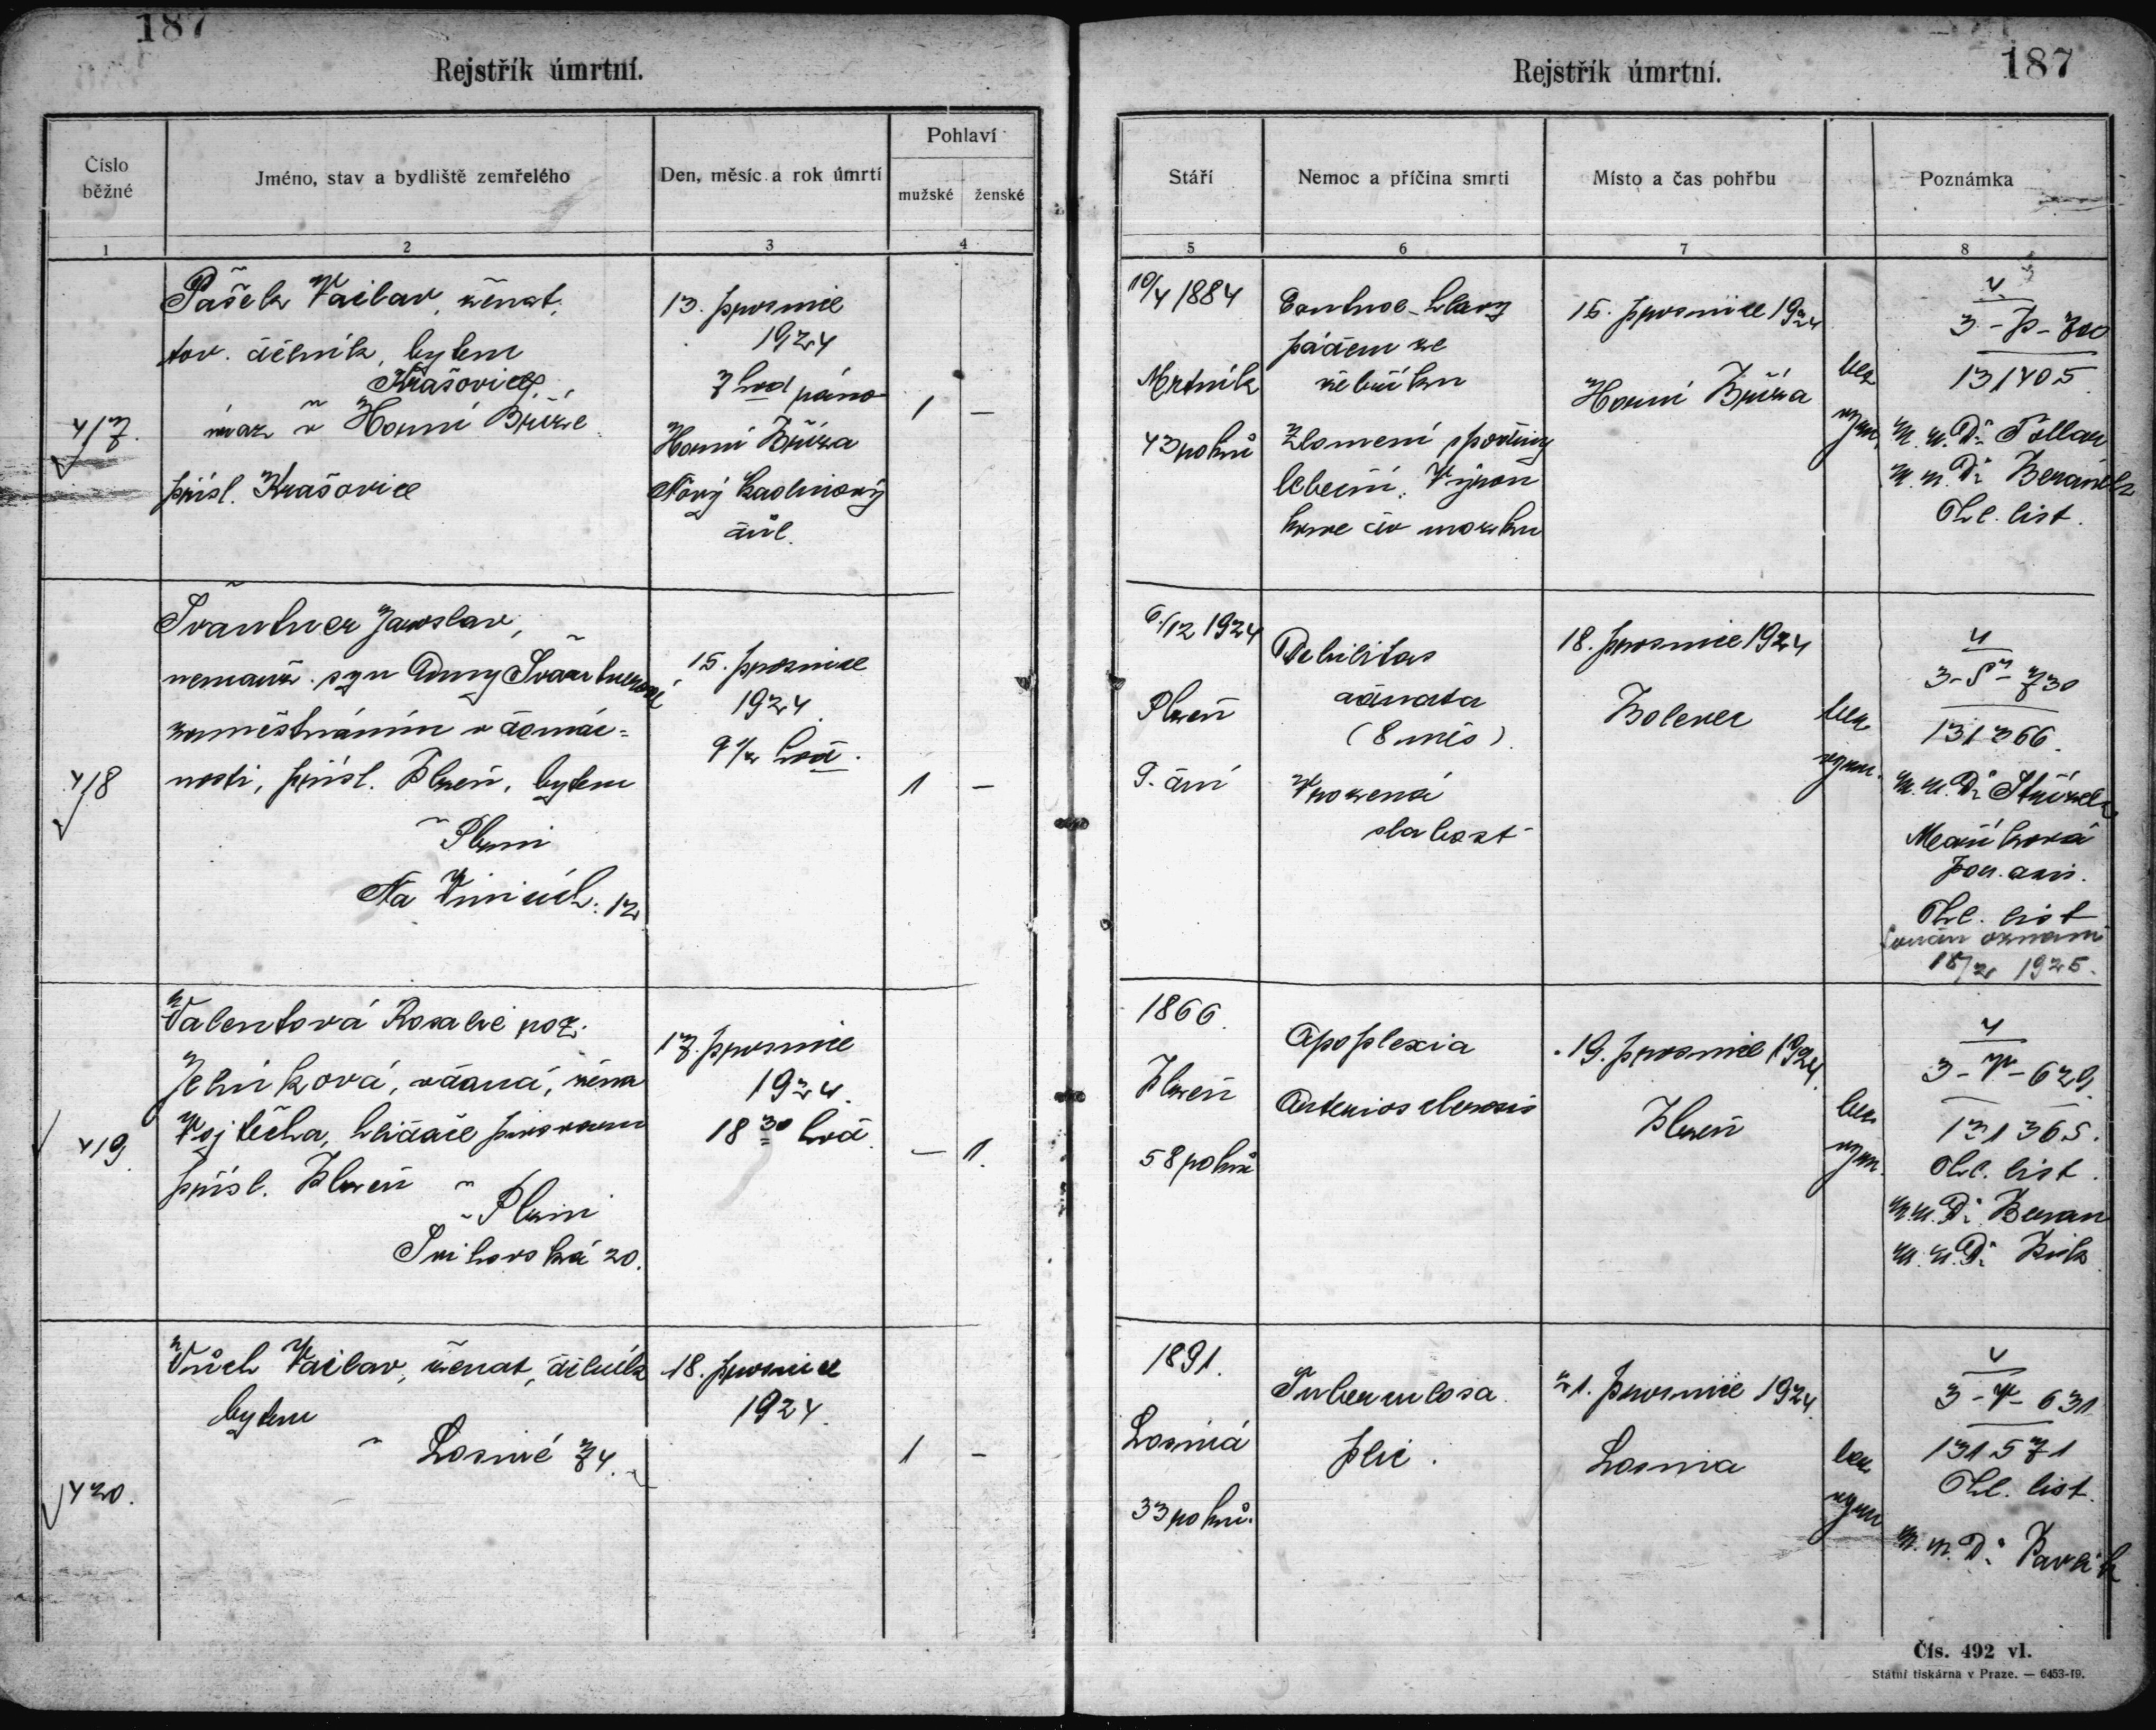 187
Rejstřík úmrtní.
Číslo běžné
Jméno, stav a bydliště zemřelého
Den, měsíc a rok úmrtí
Pohlaví
mužské
ženské
1
2
3
4
417.
Pašek Václav, ženat,
tov. dělník, bytem
Krašovice,
v Horní Bříze
přísl. Krašovice
13. prosince
1924
7 hod ráno
Horní Bříza
Nový kaolinový
důl.
1
—
418
Švantner Jaroslav,
nemanž. syn Anny Švantnerové
zaměstnáním v domác-
nosti, přísl. Plzeň, bytem
v Plzni
Na Vinicích: 12
15. prosince
1924
9 1/2 hod.
1
—
419
Valentová Rosalie roz.
Jelínková, vdaná, žena
Vojtěcha, hlídače pivovaru
přísl. Plzeň
v Plzni
Svihovská 20.
17. prosince
1924.
18 30 hod
—
1.
420.
Vůch Václav, ženat, dělník
bytem
v Losiné 74.
18. prosince
1924.
1
—
Rejstřík úmrtní.
187
Stáří
Nemoc a příčina smrti
Místo a čas pohřbu
Poznámka
5
6
7
8
10/4 1884
Mrtník
43 roků
hlavy
pádem ze
žebříku
Zlomení spodiny
lebeční. Výron
krve do mozku
15. prosince 1924
Horní Bříza
bez
vyzn.
4
3-P-700
131405
M.U.Dr
M.U.Dr Beránek
Ohl. list.
6./12 1924
Plzeň
9. dní
Debilitas
(8 měs).
Vrozená
slabost
18. prosince 1924
Bolevec
bez
vyzn.
4
3-Š-730
131366.
M.U.Dr
por. asis.
Ohl. list
18/2 1925.
1866.
Plzeň
58 roků
Apoplexia
Arteriosclerosis
19. prosince 1924.
Plzeň
bez
vyzn.
4
3-V-629
131365.
Ohl. list.
M.U.Dr Beran
M.U.Dr
1891.
Losiná
33 roků.
Tuberculosa
plic.
21. prosince 1924.
Losina
bez
vyzn
4
3-V-631
131571
Ohl. list.
M.U.Dr Pavlík
Čís. 492 vl.
Státní tiskárna v Praze. — 6453-19.